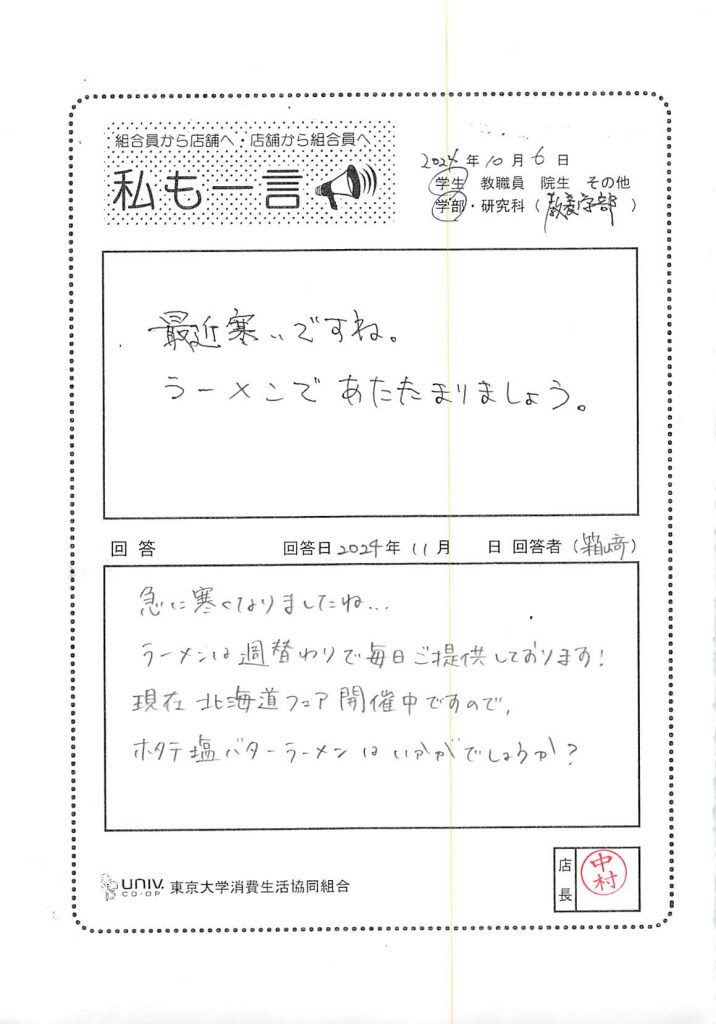 組合員から店舗へ・店舗から組合員へ
私も一言
2024年10月6日
学生 教職員 院生 その他
学部・研究科（教養学部）
最近寒いですね。
ラーメンであたたまりましょう。
回答 回答日2024年11月 日 回答者（箱崎）
急に寒くなりましたね…
ラーメンは週替わりで毎日ご提供しております！
現在北海道フェア開催中ですので、
ホタテ塩バターラーメンはいかがでしょうか？
店長
中村
UNIV.
CO-OP
東京大学消費生活協同組合